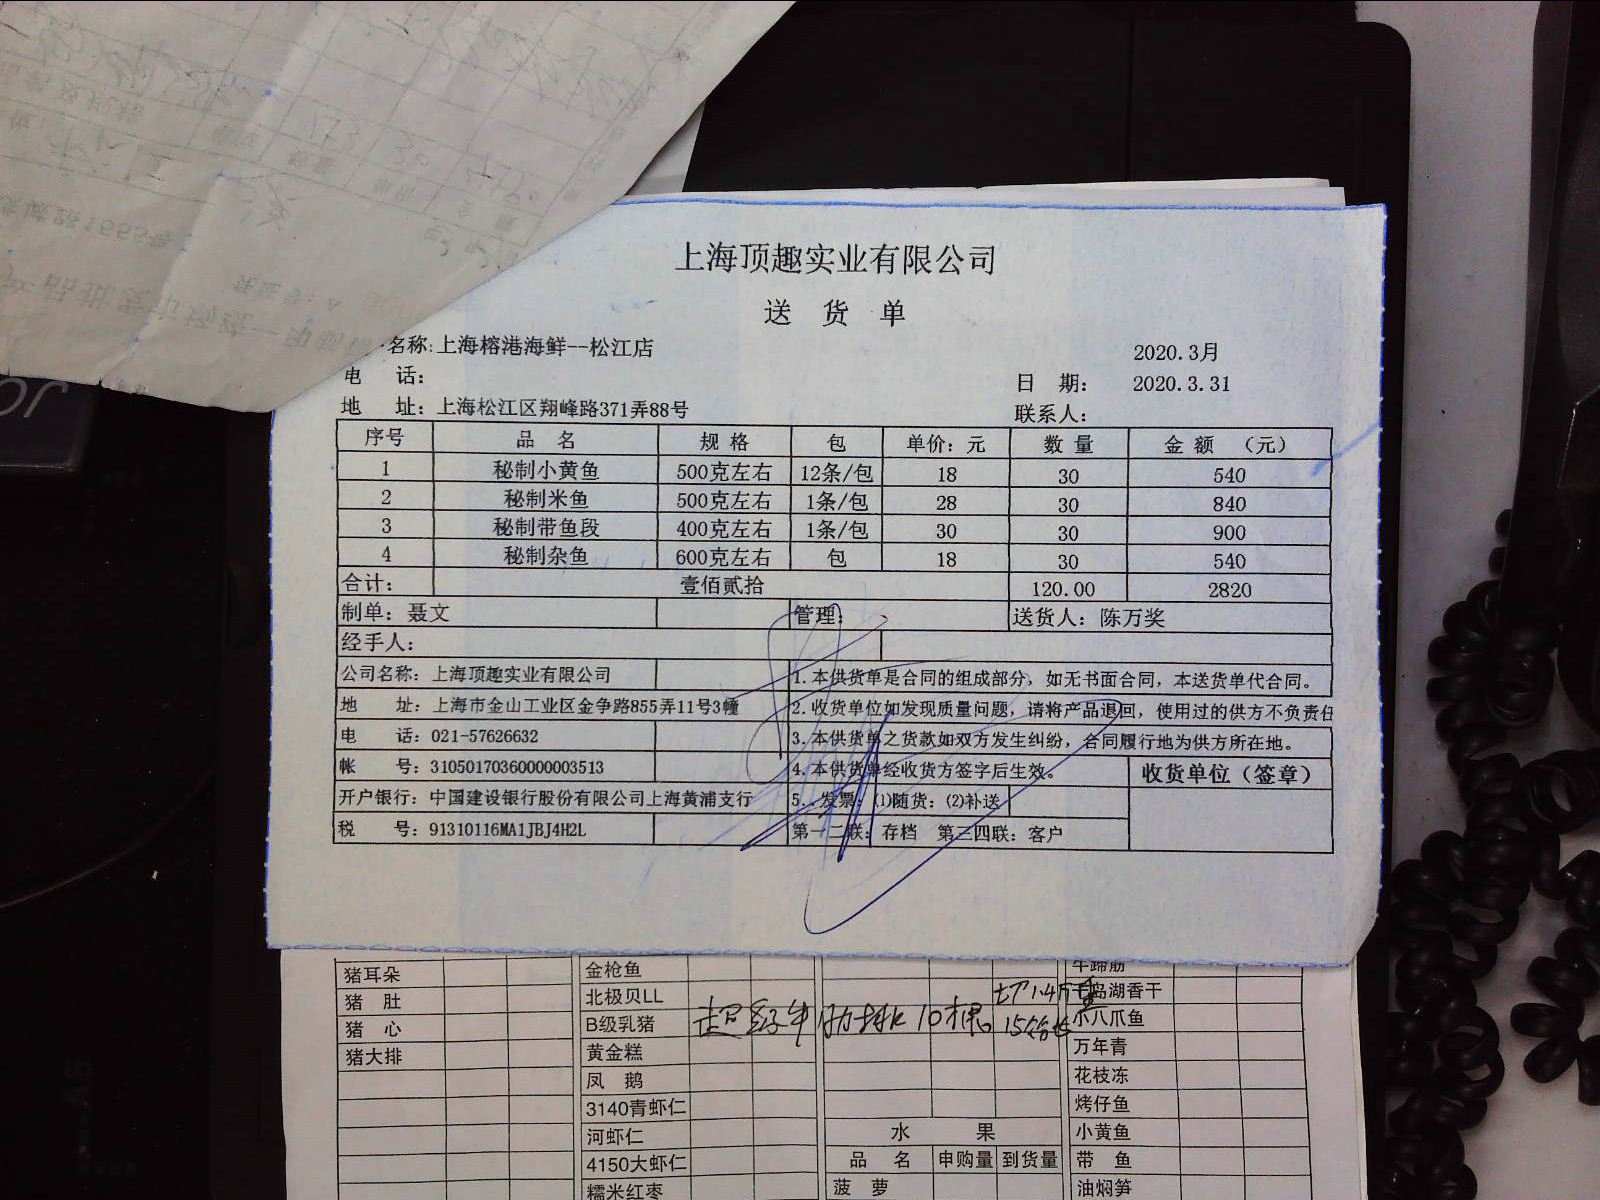 上海顶趣实业有限公司
送 货 单
名称:上海榕港海鲜--松江店
2020.3月
电 话:
日 期: 2020.3.31
地 址: 上海松江区翔峰路371弄88号
联系人:
序号 品 名 规 格 包 单价: 元 数 量 金 额 (元)
1 秘制小黄鱼 500克左右 12条/包 18 30 540
2 秘制米鱼 500克左右 1条/包 28 30 840
3 秘制带鱼段 400克左右 1条/包 30 30 900
4 秘制杂鱼 600克左右 包 18 30 540
合计: 壹佰贰拾 120.00 2820
制单: 聂文 管理: 送货人: 陈万奖
经手人:
公司名称: 上海顶趣实业有限公司 1.本供货单是合同的组成部分, 如无书面合同, 本送货单代合同。
地 址: 上海市金山工业区金争路855弄11号3幢 2.收货单位如发现质量问题, 请将产品退回, 使用过的供方不负责任
电 话: 021-57626632 3.本供货单之货款如双方发生纠纷, 合同履行地为供方所在地。
帐 号: 31050170360000003513 4.本供货单经收货方签字后生效。 收货单位 (签章)
开户银行: 中国建设银行股份有限公司上海黄浦支行 5..发票: ⑴随货: ⑵补送
税 号: 91310116MA1JBJ4H2L 第一二联: 存档 第三四联: 客户
猪耳朵 金枪鱼 牛蹄筋
猪 肚 北极贝LL 千岛湖香干
猪 心 B级乳猪 10根 小八爪鱼
猪大排 黄金糕 万年青
凤 鹅 花枝冻
3140青虾仁 烤仔鱼
河虾仁 水 果 小黄鱼
4150大虾仁 品 名 申购量 到货量 带 鱼
糯米红枣 菠 萝 油焖笋